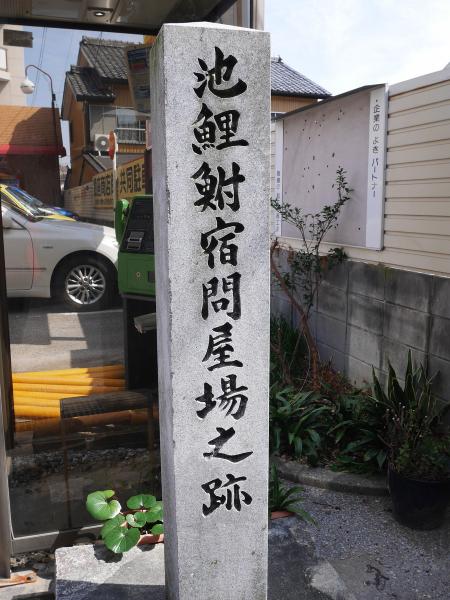 池鯉鮒宿問屋場之跡
・企業の よき パートナー